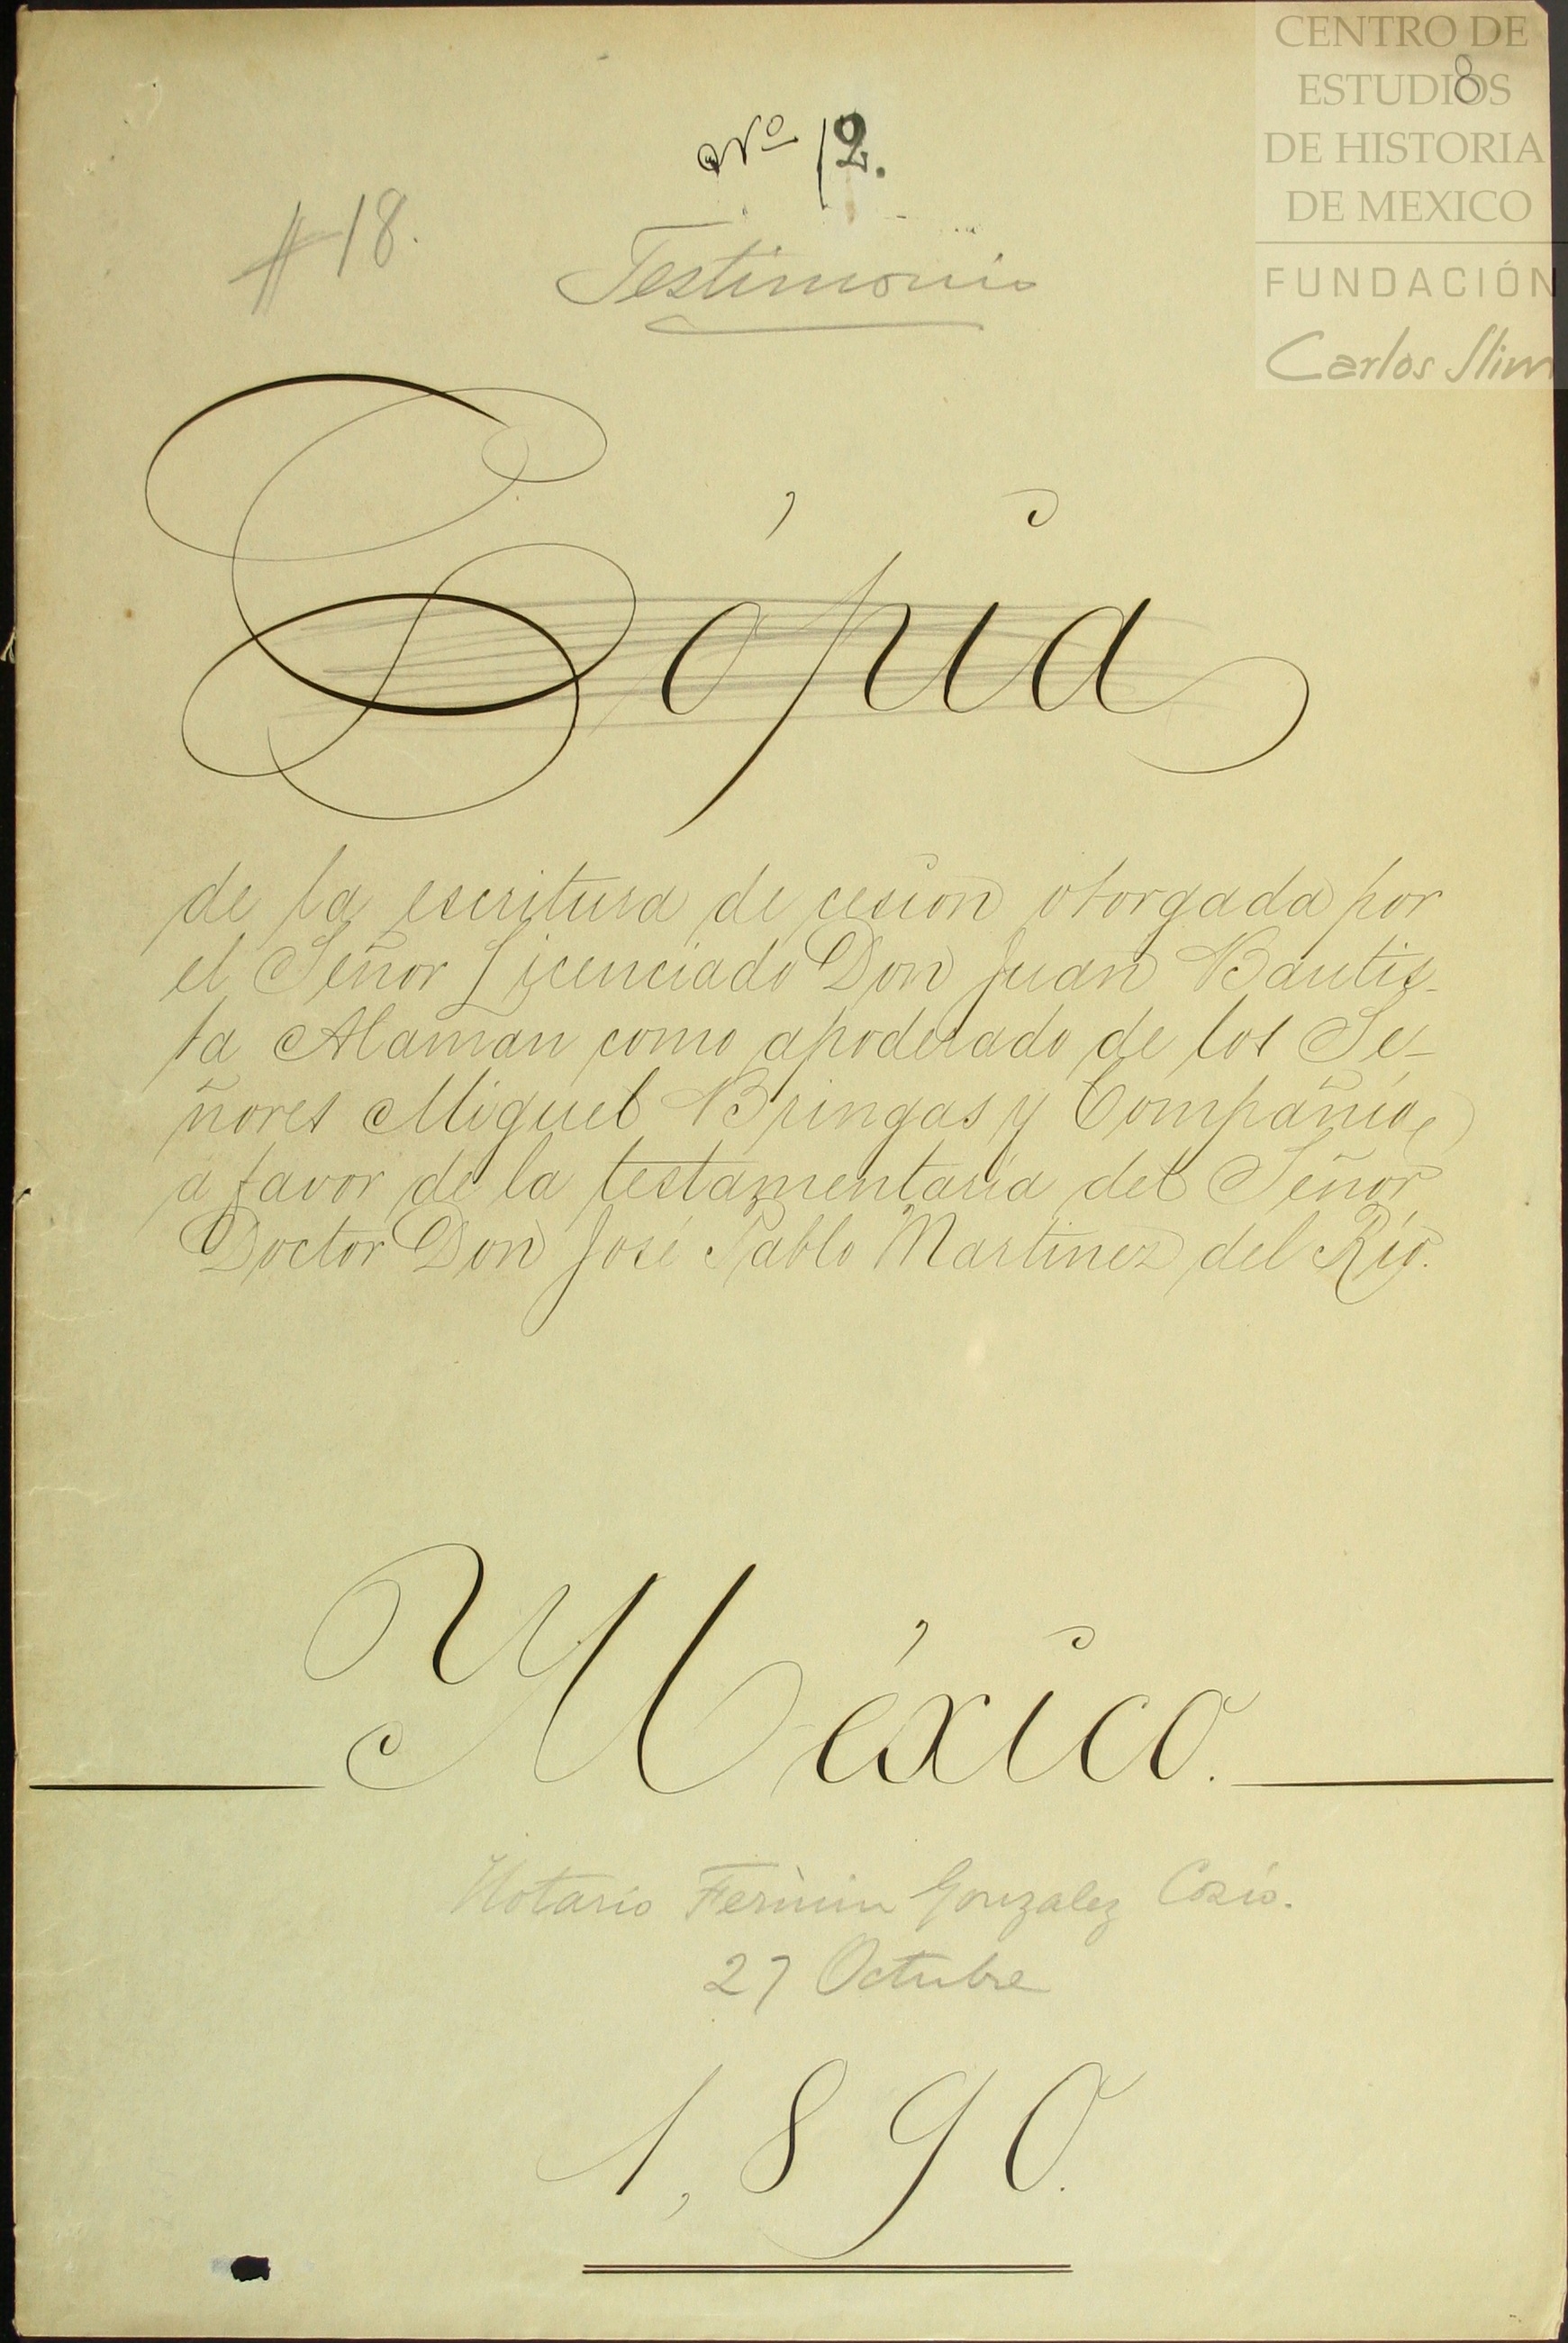 CENTRO DE
ESTUDIOS
DE HISTORIA
DE MEXICO
FUNDACIÓN
Carlos Slim
8
Nº 12.
# 18.
Testimonio
Cópia
de la escritura de cesion otorgada por
el Señor Licenciado Don Juan Bautis-
ta Alaman como apoderado de los Se-
ñores Miguel Bringas y Compañía,
a favor de la testamentaría del Señor
Doctor Don José Pablo Martinez del Río.
México.
Notario Fermin Gonzalez Cosio.
27 Octubre
1,890.